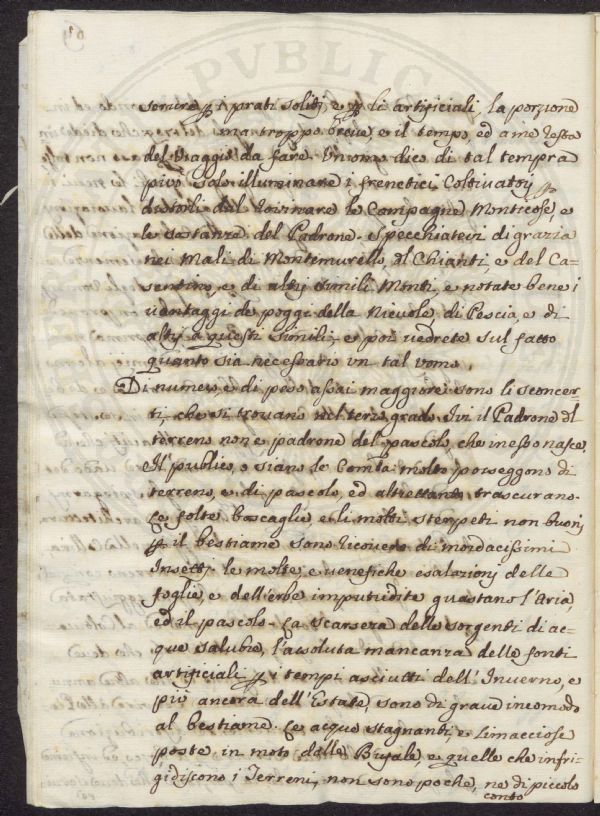 69
PUBLIC
servire p i prati soliti, e p li artificiali, la porzione
ma troppo breve, e il tempo, ed a me resta
del viaggio da fare. Un uomo dico di tal tempra
può solo illuminare i frenetici Coltivatorj p
distorli dal rovinare le Campagne Montuose, e
le sostanze del Padrone. Specchiatevi di grazia
nei Mali di Montemurello, del Chianti, e del Ca=
sentino, e di altrj simili Monti, e notate bene i
vantaggi de poggi della Nievole, di Pescia, e di
altrj a questi simili, e poi vedrete sul fatto
quanto sia necessario un tal uomo.
Di numero, e di peso assai maggiore sono li sconcer=
ti, che si trovano nel terzo grado. Ivi il Padrone del
terreno non e padrone del pascolo, che in esso nasce.
Il publico, o siano le Comtà molto posseggono di
terreno, e di pascolo, ed altrettanto trascurano.
Le folte boscaglie e li molti sterpeti non buonj
p il bestiame sono ricovero di mordacissimi
Insettj. le molte, e venefiche esalazionj delle
foglie, e dell'erbe imputridite guastano l'Aria,
ed il pascolo. La scarsezza delle sorgenti di ac=
que salubri, l'assoluta mancanza delle fonti
artificiali p i tempi asciutti dell'Inverno, e
più ancora dell'Estate, sono di grave incomodo
al bestiame. Le acque stagnanti, e Limacciose
poste in moto dalle e quelle che infri=
gidiscono i Terreni, non sono poche, ne di piccolo
conto